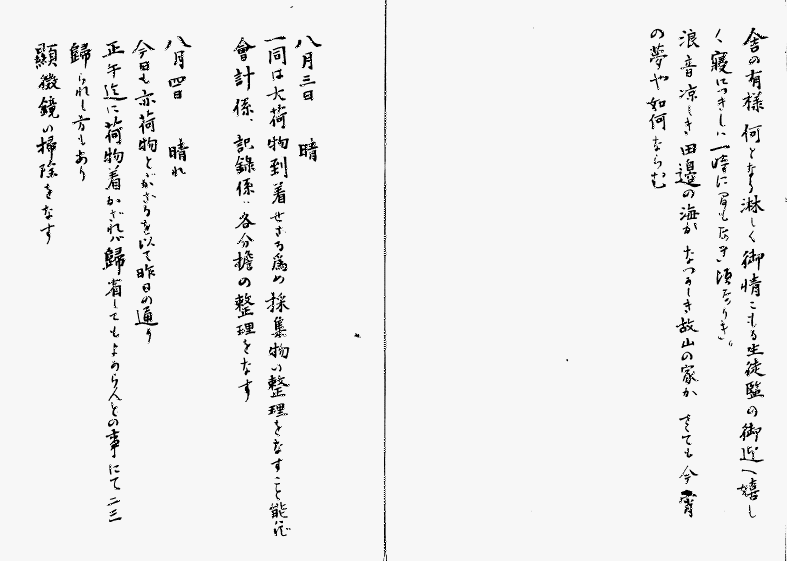 舎の有様何となう淋しく御情こもる生徒監の御迎へ嬉し
く寝につきしは一時に間もなき頃なりき。
浪音凉しき田邊の海か なつかしき故山の家か さても今宵
の夢や如何ならむ
八月三日 晴
一同は大荷物到着せざる為め採集物の整理をなすこと能はず
會計係、記録係は各分擔の整理をなす
八月四日 晴れ
今日も亦荷物とゞかざるを以て昨日の通り
正午迄に荷物着かざれば歸省してもよからんとの事にて二三
歸られし方もあり
顯微鏡の掃除をなす